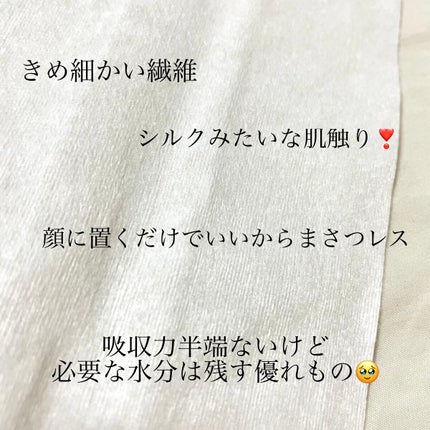 きめ細かい繊維
シルクみたいな肌触り❣️
顔に置くだけでいいからまさつレス
吸収力半端ないけど
必要な水分は残す優れもの🥹